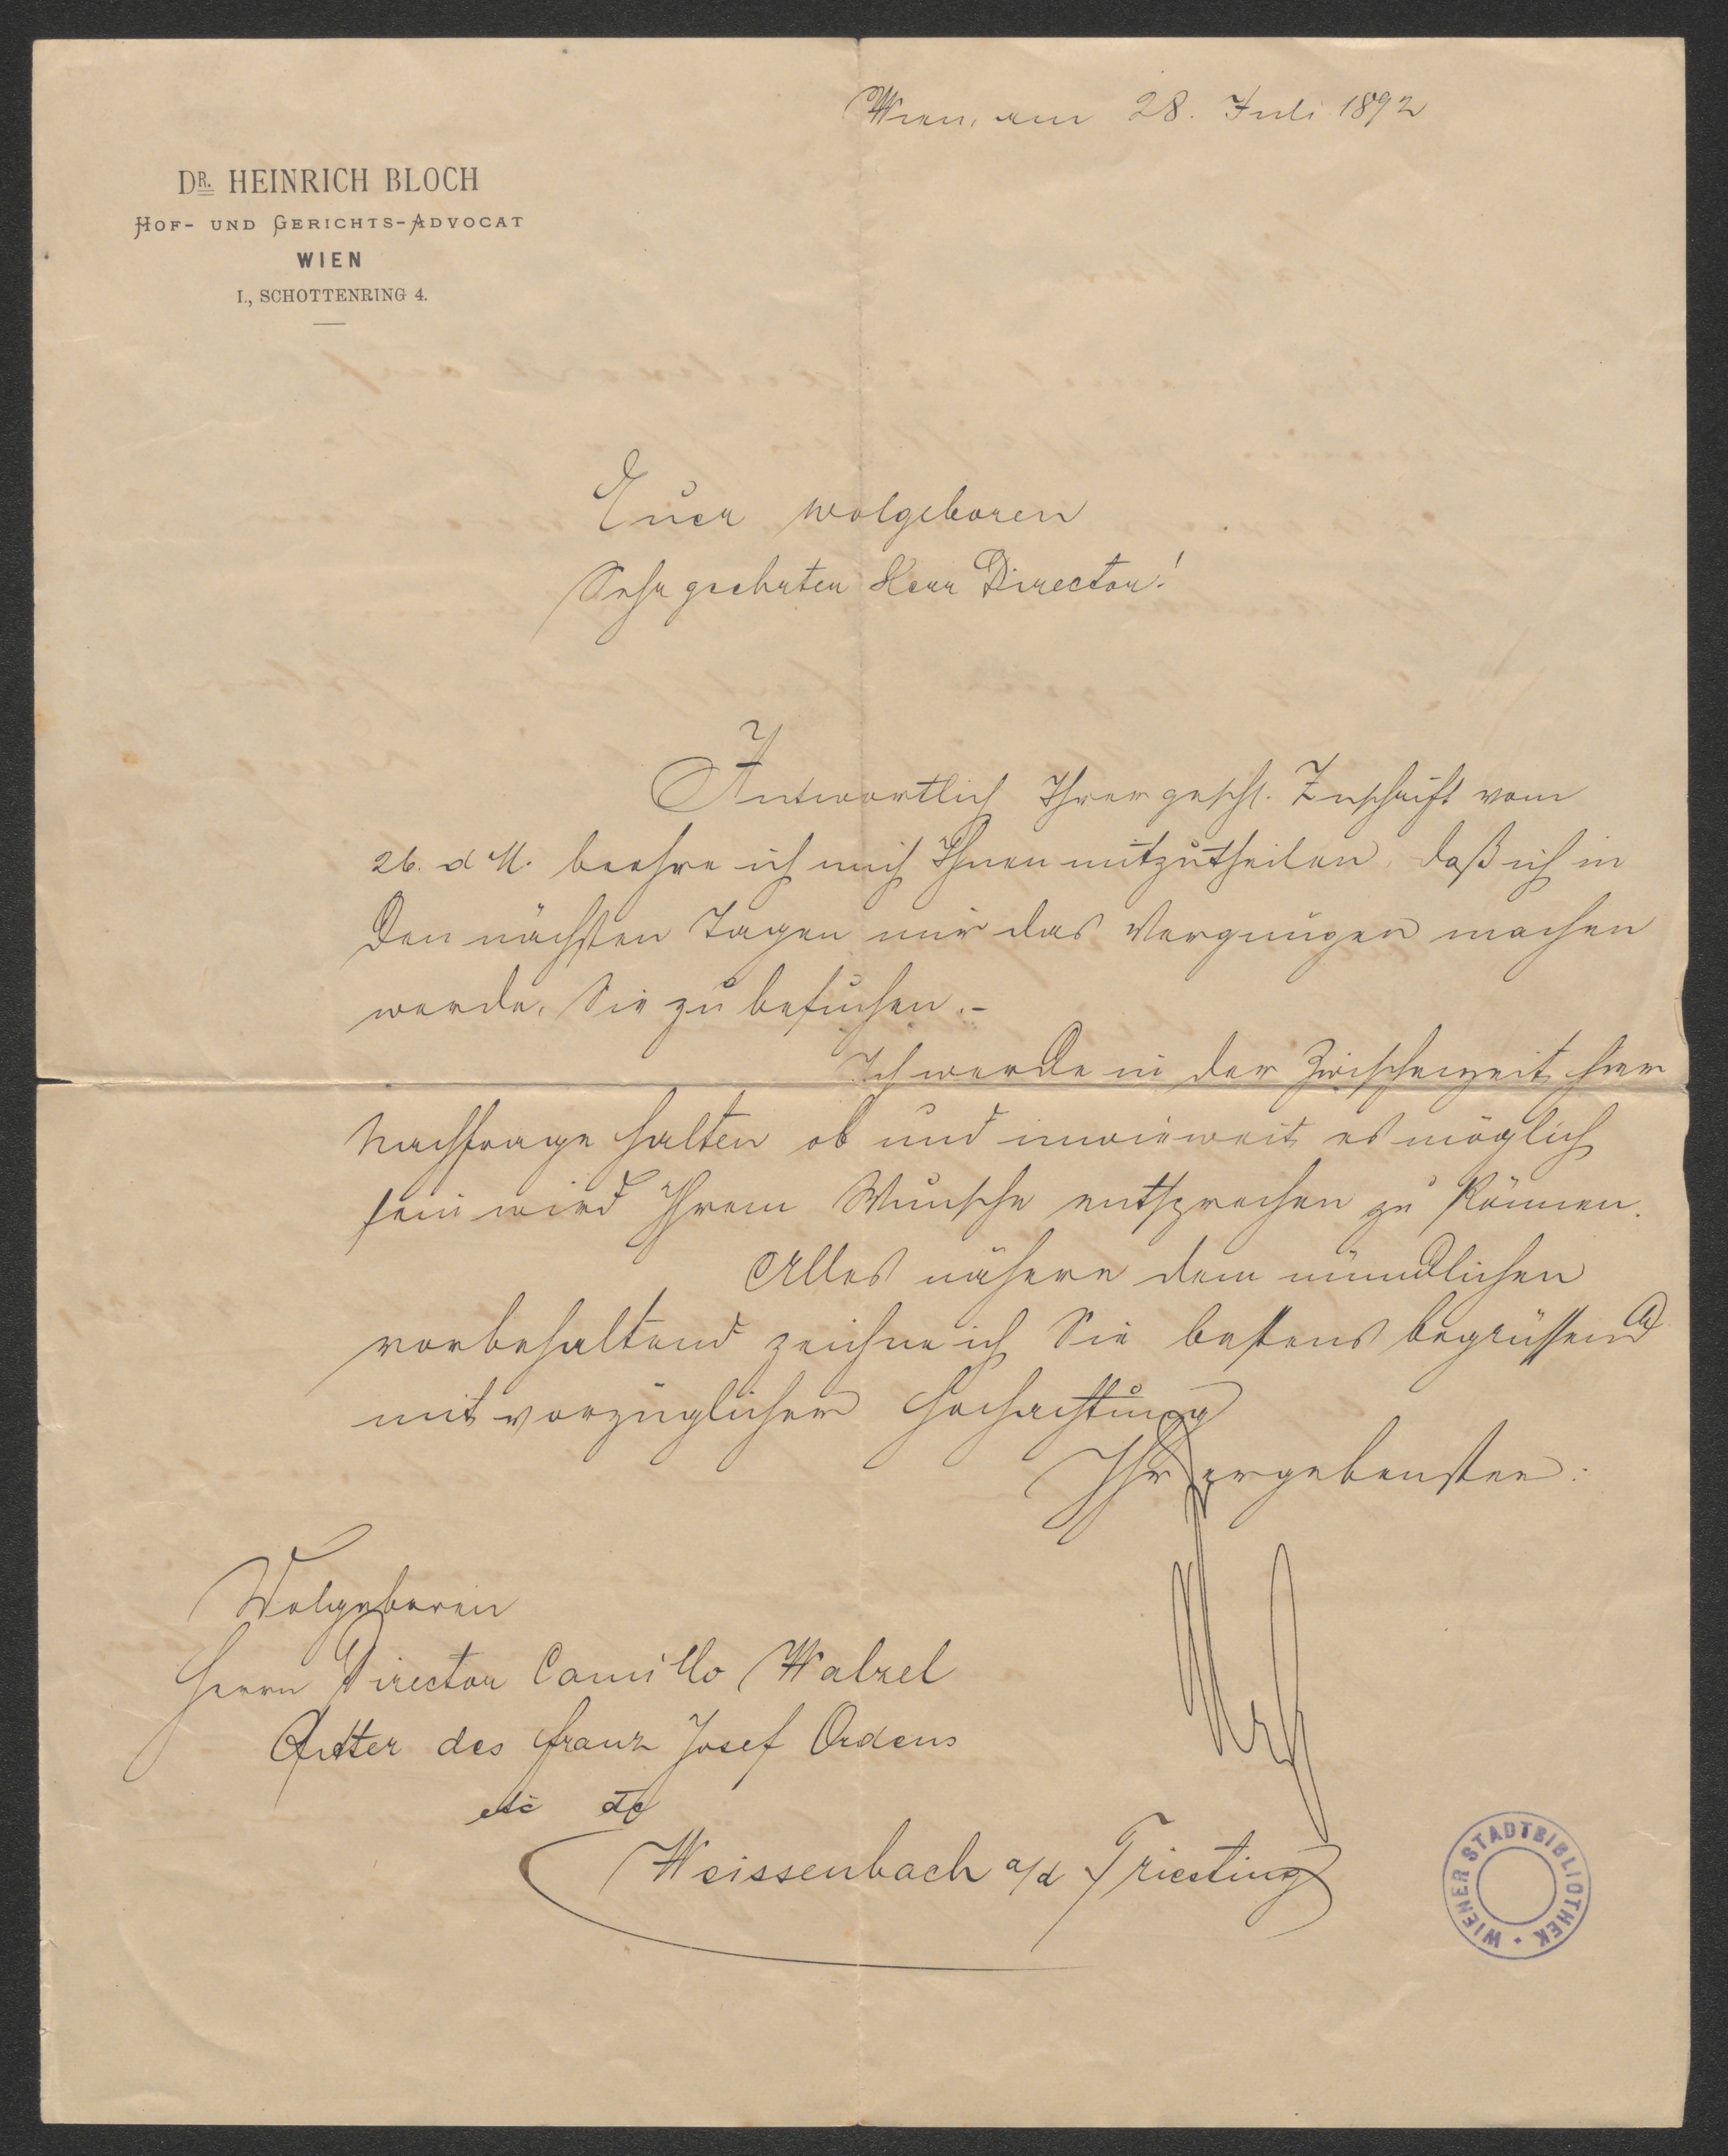 Wien, am 28. Juli 1892
DR. HEINRICH BLOCH
HOF- UND GERICHTS-ADVOCAT
WIEN
I., SCHOTTENRING 4.
Euer Wolgeboren
Sehr geehrter Herr Director!
Antwortlich Ihrer gesch. Zuschrift vom
26. d M. beehre ich mich Ihnen mitzutheilen, daß ich in
den nächsten Tagen mir das Vergnügen machen
werde, Sie zu besuchen.-
Ich werde in der Zwischenzeit hier
Nachfrage halten ob und inwieweit es möglich
sein wird Ihrem Wunsche entsprechen zu können.
Alles nähere dem mündlichen
vorbehaltend zeichne ich Sie bestens begrüssend
mit vorzüglicher Hochachtung
Ihr ergebenster:
Wolgeboren
Herrn Director Camillo Walzel
Ritter des Franz Josef Ordens
etc etc
Weissenbach a/d Triesting
WIENER STADTBIBLIOTHEK